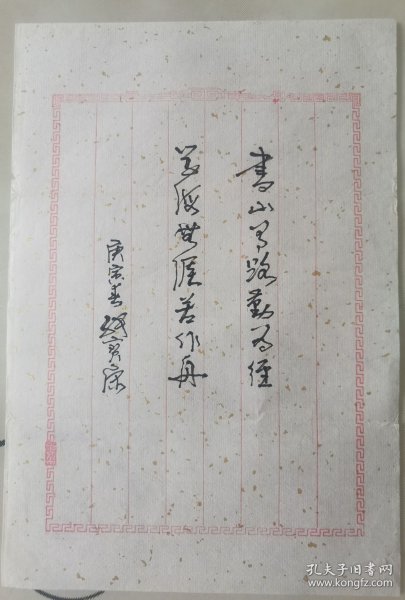 書山有路勤为徑
学海無涯苦作舟
庚寅春
孔夫子旧书网
www.kongfz.com